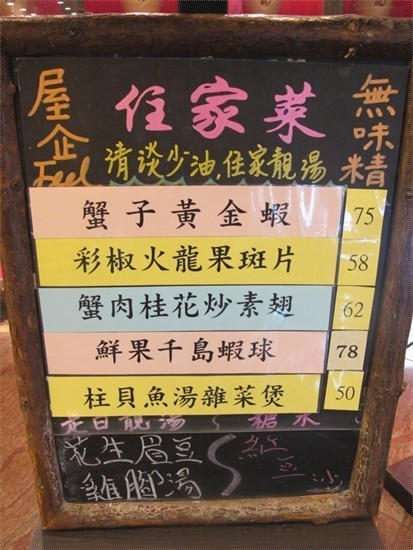 住家菜
屋企Feel
無味精
清淡少油,住家靚湯
蟹子黃金蝦 75
彩椒火龍果斑片 58
蟹肉桂花炒素翅 62
鮮果千島蝦球 78
柱貝魚湯雜菜煲 50
是日靚湯 糖水
花生眉豆 紅豆沙
雞腳湯